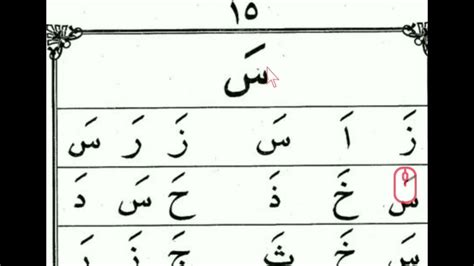 ١٥
سَ
زَ اَ سَ زَ رَ سَ
سَ خَ ذَ حَ سَ دَ
سَ خَ ثَ جَ زَ رَ